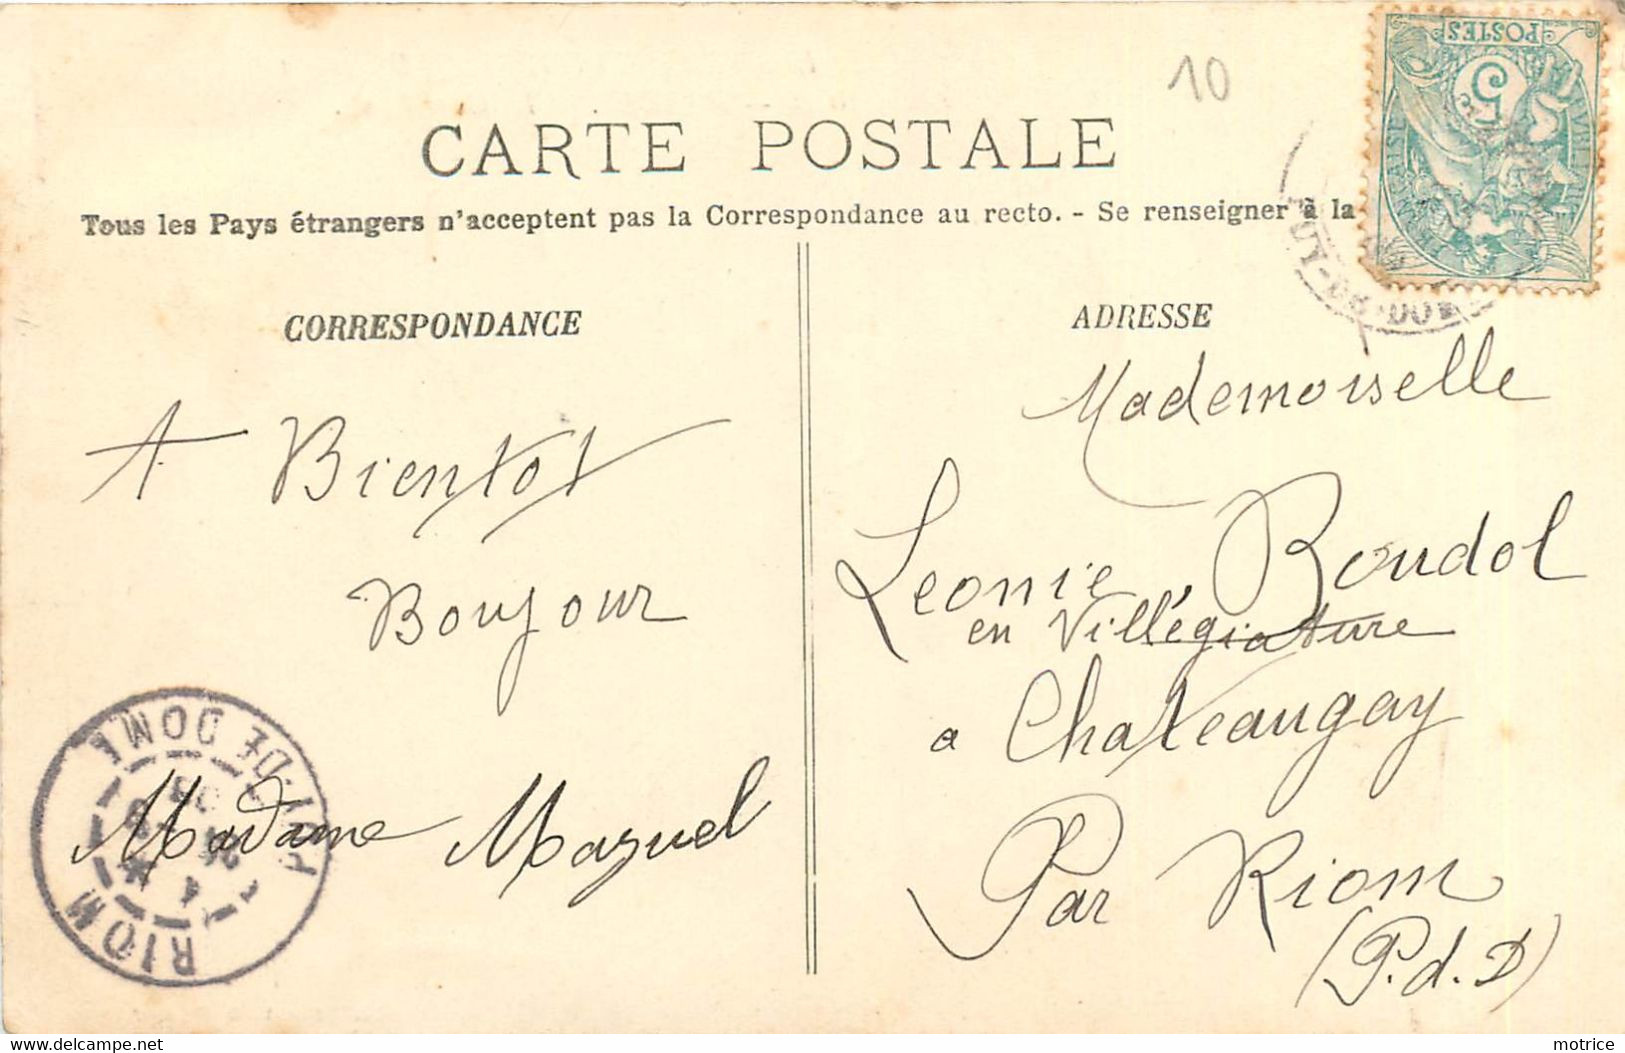 10
POSTES
5
CARTE POSTALE
Tous les Pays étrangers n'acceptent pas la Correspondance au recto. - Se renseigner à la
PUY-DE-DOME
CORRESPONDANCE
ADRESSE
A Bientot
Bonjour
Madame Mazuel
RIOM
PUY-DE-DOME
Mademoiselle
Leonie Boudol
en Villégiature
a Chateaugay
Par Riom
(P.d.D)
delcampe.net
motrice